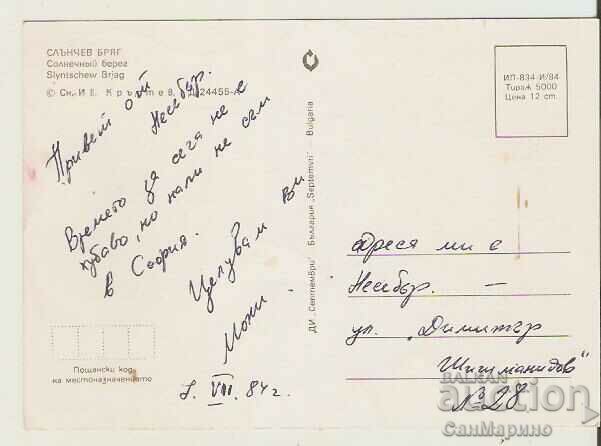 СЛЪНЧЕВ БРЯГ
Солнечный берег
Slyntschew Brjag
© Сн. И Е. Кръстев, Д-24455-А
Привет от
Несебър.
Времето за сега не е
хубаво, но нали не съм
в София.
Целувам ви
7. VII. 84 г.
Пощенски код
на местоназначението
ДИ „Септември" — България „Septemvri" — Bulgaria
ИП-834-И/84
Тираж 5000
Цена 12 ст.
адреса ми е
Несебър. —
ул. „Димитър
Шишманидов"
№ 28
БАЛКАН
auction
СанМарино